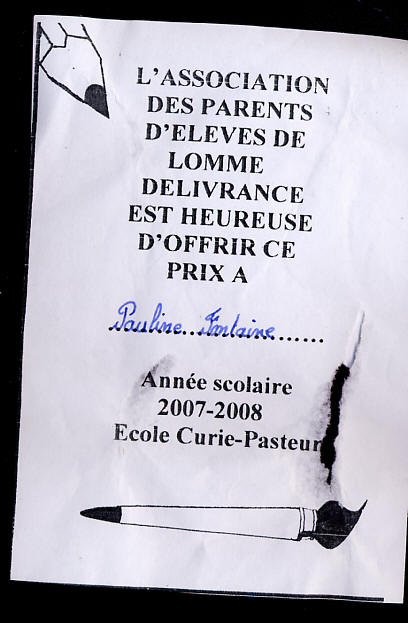 L'ASSOCIATION
DES PARENTS
D'ELEVES DE
LOMME
DELIVRANCE
EST HEUREUSE
D'OFFRIR CE
PRIX A
Pauline Fontaine
Année scolaire
2007-2008
Ecole Curie-Pasteur